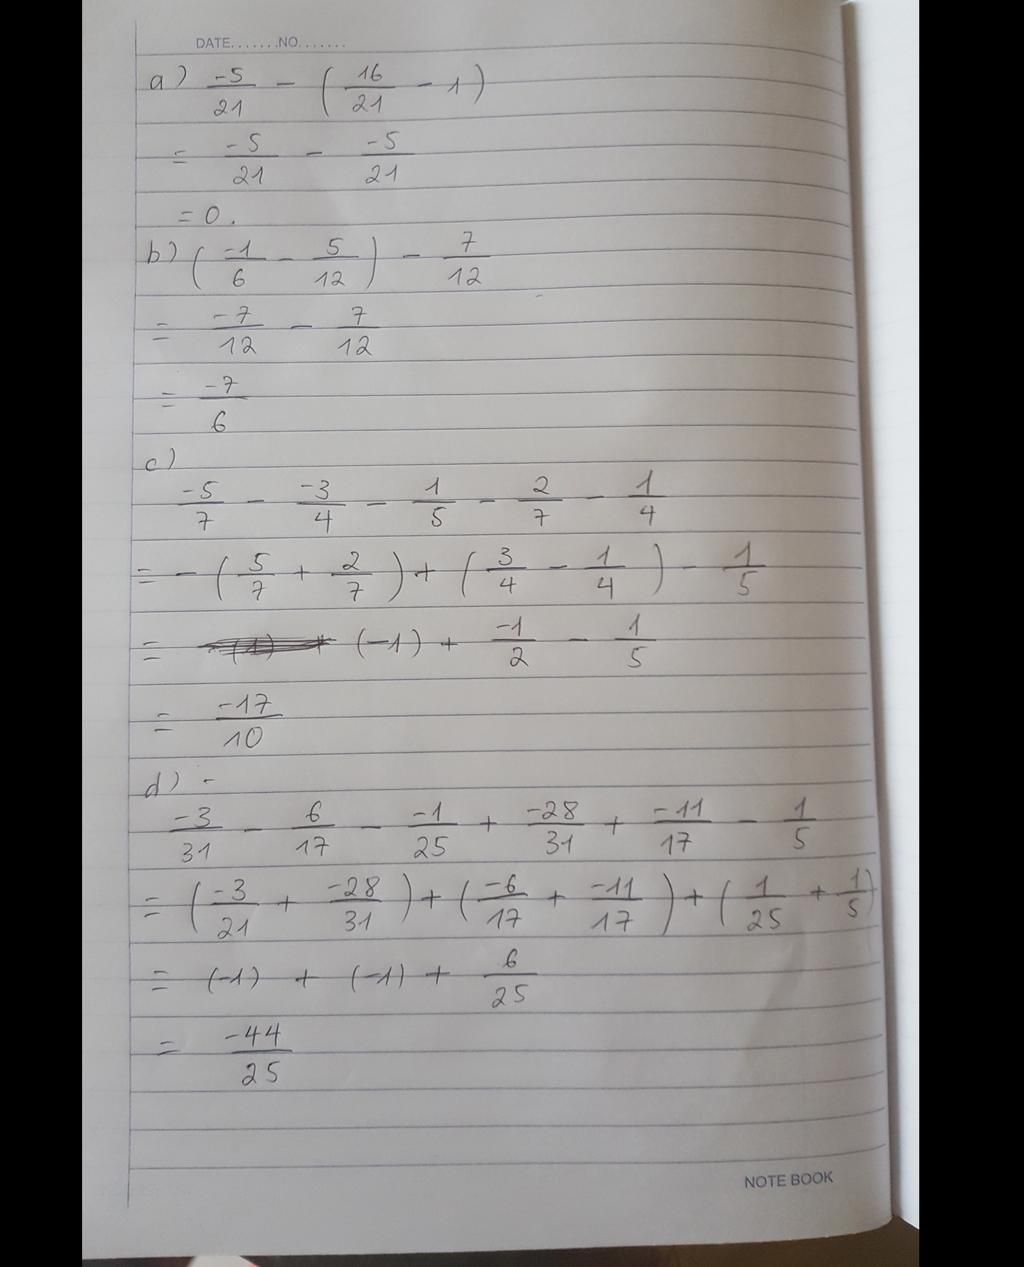 DATE.......NO.......
a) -5/21 - (16/21 - 1)
= -5/21 - -5/21
= 0.
b) (-1/6 - 5/12) - 7/12
= -7/12 - 7/12
= -7/6
c)
-5/7 - -3/4 - 1/5 - 2/7 - 1/4
= - (5/7 + 2/7) + (3/4 - 1/4) - 1/5
= (-1) + -1/2 - 1/5
= -17/10
d) -
-3/31 - 6/17 - -1/25 + -28/31 + -11/17 - 1/5
= (-3/21 + -28/31) + (-6/17 + -11/17) + (1/25 + 1/5)
= (-1) + (-1) + 6/25
= -44/25
NOTE BOOK